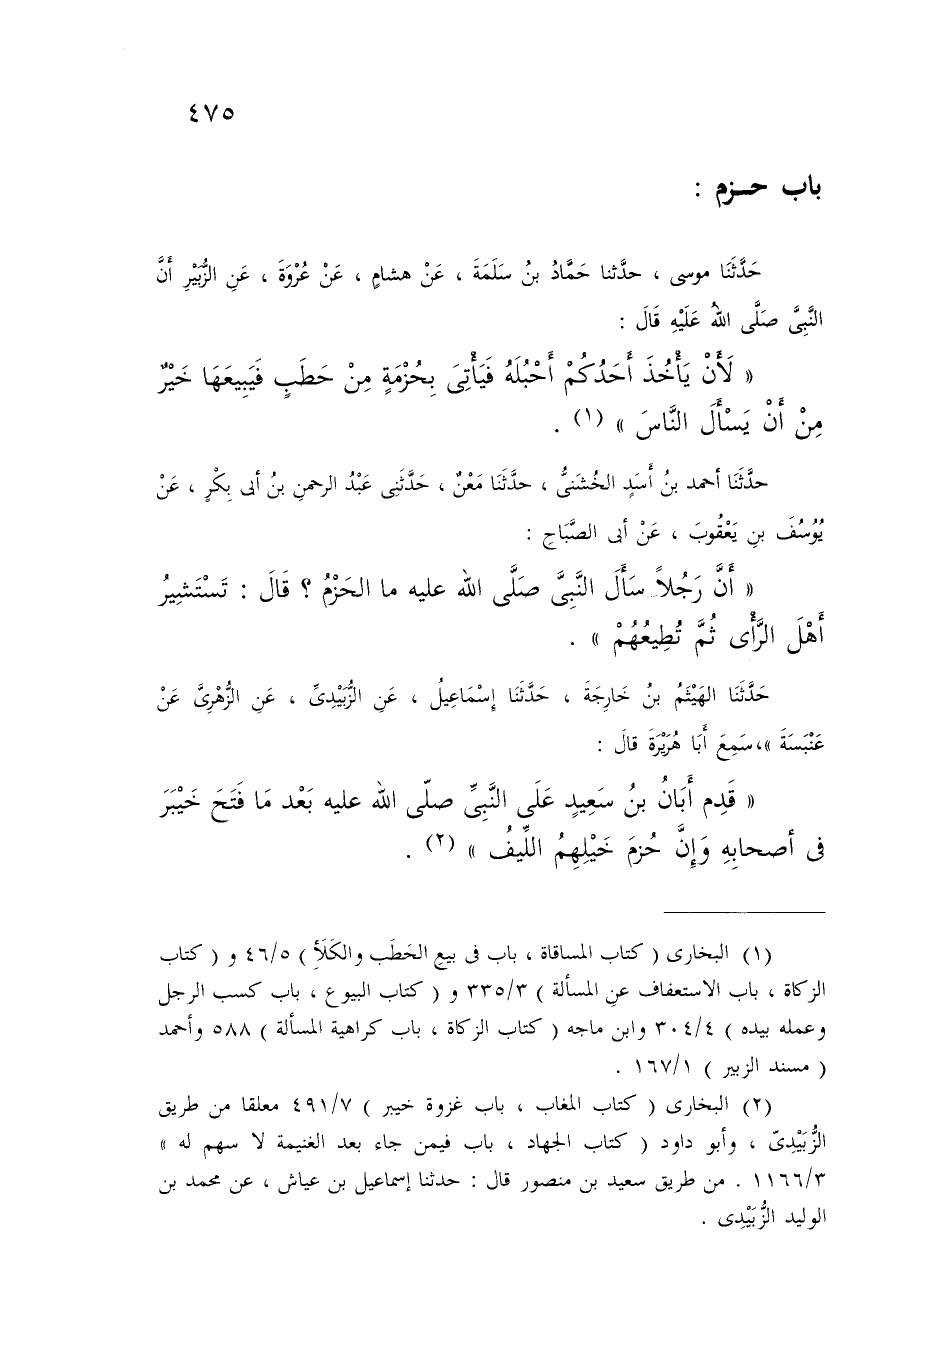 ٤٧٥
باب حـزم :
حَدَّثَنَا موسى ، حدَّثنا حَمَّادُ بنُ سَلَمَةَ ، عَنْ هشامٍ ، عَنْ عُرْوَةَ ، عَنِ الزُّبَيْرِ أَنَّ
النَّبِىَّ صَلَّى اللهُ عَلَيْهِ قَالَ :
« لَأَنْ يَأْخُذَ أَحَدُكُمْ أَحْبُلَهُ فَيَأْتِىَ بِحُزْمَةٍ مِنْ حَطَبٍ فَيَبِيعَهَا خَيْرٌ
مِنْ أَنْ يَسْأَلَ النَّاسَ » (١) .
حدَّثَنَا أحمد بنُ أَسَدٍ الخُشَنىُّ ، حدَّثَنَا مَعْنٌ ، حَدَّثَنِى عَبْدُ الرحمنِ بنُ أبى بِكْرٍ ، عَنْ
يُوُسُفَ بنِ يَعْقُوبَ ، عَنْ أبى الصَّبَاحِ :
« أَنَّ رَجُلاً سَأَلَ النَّبِىَّ صَلَّى الله عليه ما الحَزْمُ ؟ قَالَ : تَسْتَشِيرُ
أَهْلَ الرَّأْى ثُمَّ تُطِيعُهُمْ » .
حَدَّثَنَا الهَيْثَمُ بنُ خَارِجَةَ ، حَدَّثَنَا إِسْمَاعِيلُ ، عَنِ الزُّبَيْدِىِّ ، عَنِ الزُّهْرِىَّ عَنْ
عَنْبَسَةَ »، سَمِعَ أَبَا هُرَيْرَةَ قالَ :
« قَدِم أَبَانُ بنُ سَعِيدٍ عَلَى النَّبِىِّ صلّى الله عليه بَعْد مَا فَتَحَ خَيْبَرَ
فى أصحابِهِ وَإِنَّ حُزمَ خَيْلِهِمُ اللِّيفُ » (٢) .
(١) البخارى ( كتاب المساقاة ، باب فى بيعِ الحَطَب والكَلَأِ ) ٤٦/٥ و ( كتاب
الزكاة ، باب الاستعفاف عن المسألة ) ٣٣٥/٣ و ( كتاب البيوع ، باب كسب الرجل
وعمله بيده ) ٣٠٤/٤ وابن ماجه ( كتاب الزكاة ، باب كراهية المسألة ) ٥٨٨ وأحمد
( مسند الزبير ) ١٦٧/١ .
(٢) البخارى ( كتاب المغاب ، باب غزوة خيبر ) ٤٩١/٧ معلقا من طريق
الزُّبَيْدِىّ ، وأبو داود ( كتاب الجهاد ، باب فيمن جاء بعد الغنيمة لا سهم له »
١١٦٦/٣ . من طريق سعيد بن منصور قال : حدثنا إسماعيل بن عياش ، عن محمد بن
الوليد الزُّبَيْدِى .